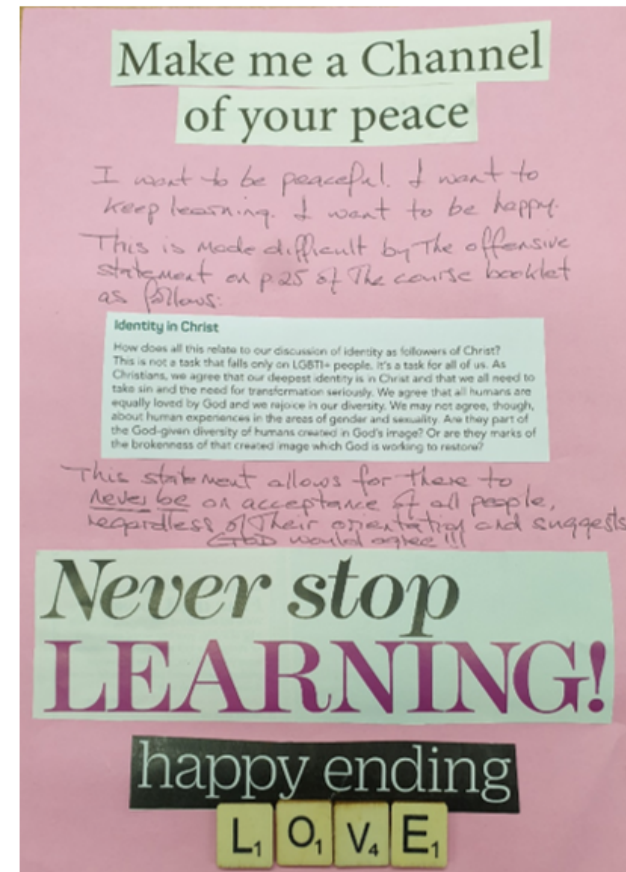 Make me a Channel
of your peace
I want to be peaceful. I want to
keep learning. I want to be happy.
This is made difficult by the offensive
statement on p 25 of the course booklet
as follows:
Identity in Christ
How does all this relate to our discussion of identity as followers of Christ?
This is not a task that falls only on LGBTI+ people, it's a task for all of us. As
Christians, we agree that our deepest identity is in Christ and that we all need to
take sin and the need for transformation seriously. We agree that all humans are
equally loved by God and we rejoice in our diversity. We may not agree, though,
about human experiences in the areas of gender and sexuality. Are they part of
the God-given diversity of humans created in God's image? Or are they marks of
the brokenness of that created image which God is working to restore?
This statement allows for there to
never be an acceptance of all people,
regardless of their orientation and suggests
GOD would agree!!!
Never stop
LEARNING!
happy ending
L1 O1 V4 E1